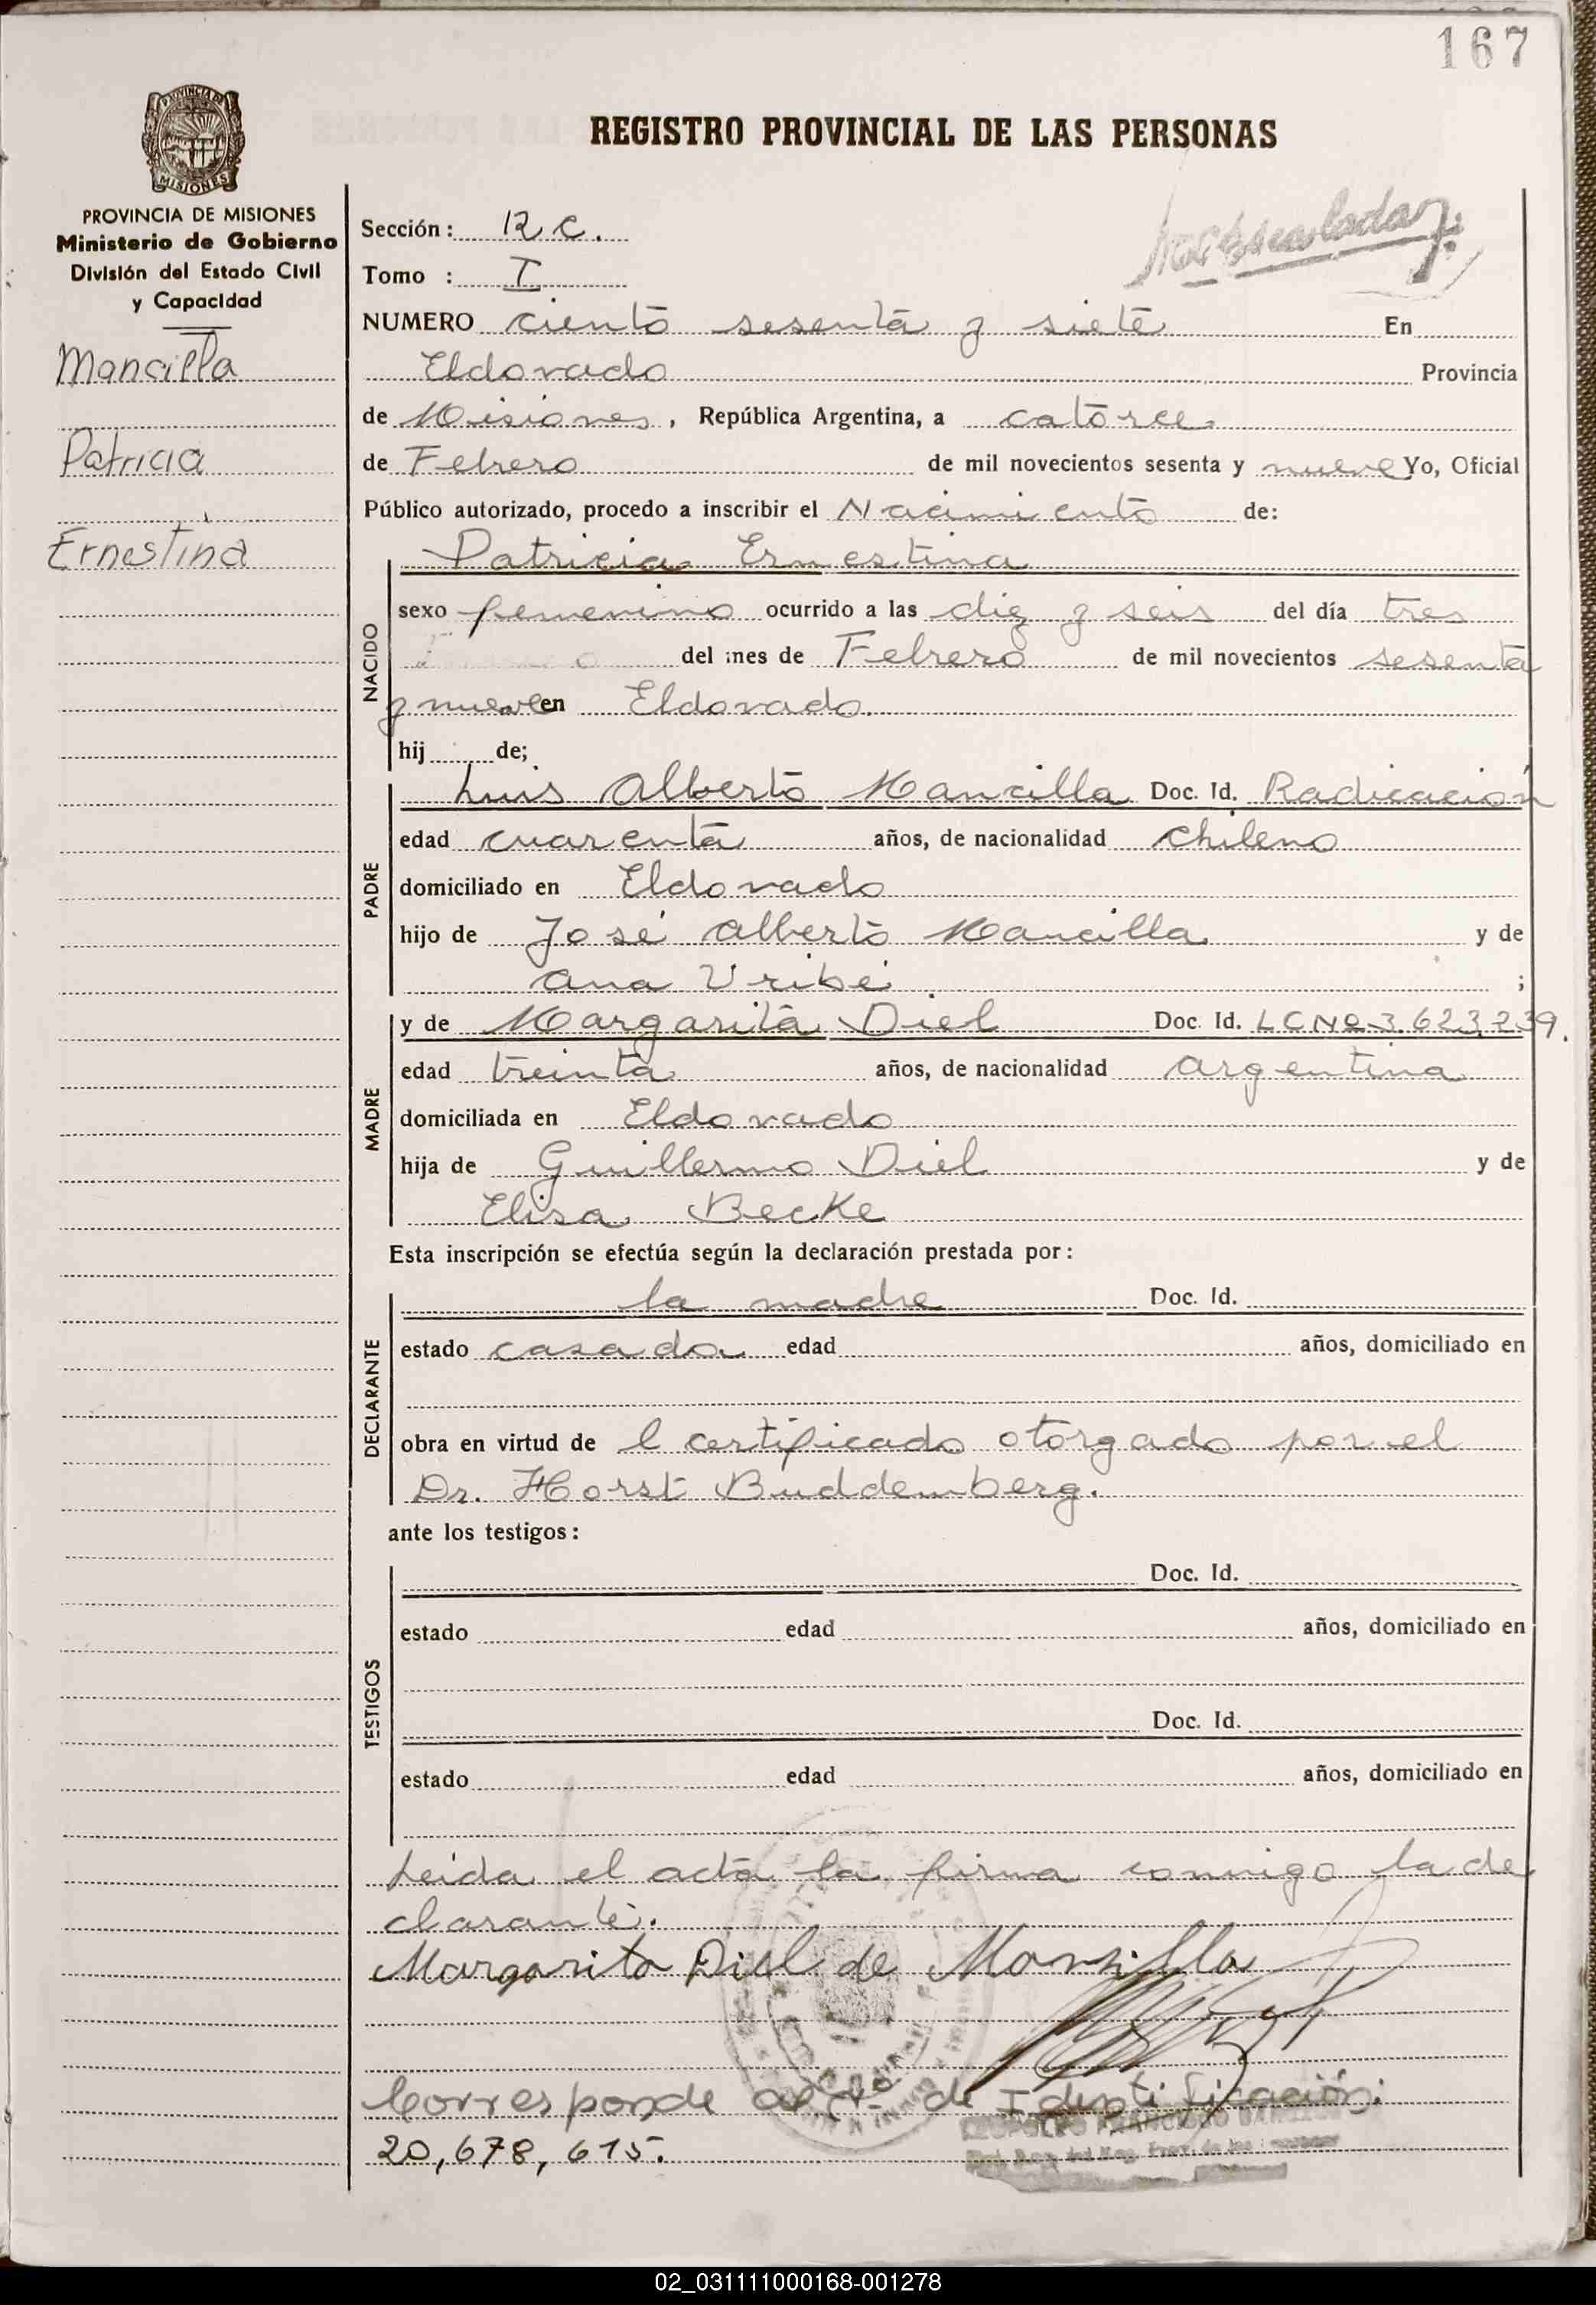 167
REGISTRO PROVINCIAL DE LAS PERSONAS
PROVINCIA DE MISIONES
MISIONES
PROVINCIA DE MISIONES
Ministerio de Gobierno
División del Estado Civil
y Capacidad
Mancilla
Patricia
Ernestina
Sección: R C.
Tomo : I
NUMERO ciento sesenta y siete En
Eldorado Provincia
de Misiones, República Argentina, a catorce
de Febrero de mil novecientos sesenta y nueve Yo, Oficial
Público autorizado, procedo a inscribir el Nacimiento de:
NACIDO
Patricia Ernestina
sexo femenino ocurrido a las diez y seis del día tres
del mes de Febrero de mil novecientos sesenta
y nueve en Eldorado.
hij de;
PADRE
Luis Alberto Mancilla Doc. Id. Radicación
edad cuarenta años, de nacionalidad chileno
domiciliado en Eldorado
hijo de José Alberto Mancilla y de
Ana Uribe ;
MADRE
y de Margarita Diel Doc. Id. LCNo 3.623.239.
edad treinta años, de nacionalidad argentina
domiciliada en Eldorado
hija de Guillermo Diel y de
Elisa Becke
Esta inscripción se efectúa según la declaración prestada por:
DECLARANTE
la madre Doc. Id.
estado casada edad años, domiciliado en
obra en virtud de l certificado otorgado por el
Dr. Horst Buddemberg.
ante los testigos:
TESTIGOS
Doc. Id.
estado edad años, domiciliado en
Doc. Id.
estado edad años, domiciliado en
Leída el acta la firma conmigo la de
clarante.
Margarita Diel de Mansilla
Corresponde al Nº de Identificación:
20,678,615.
FRANCISCO
02_031111000168-001278